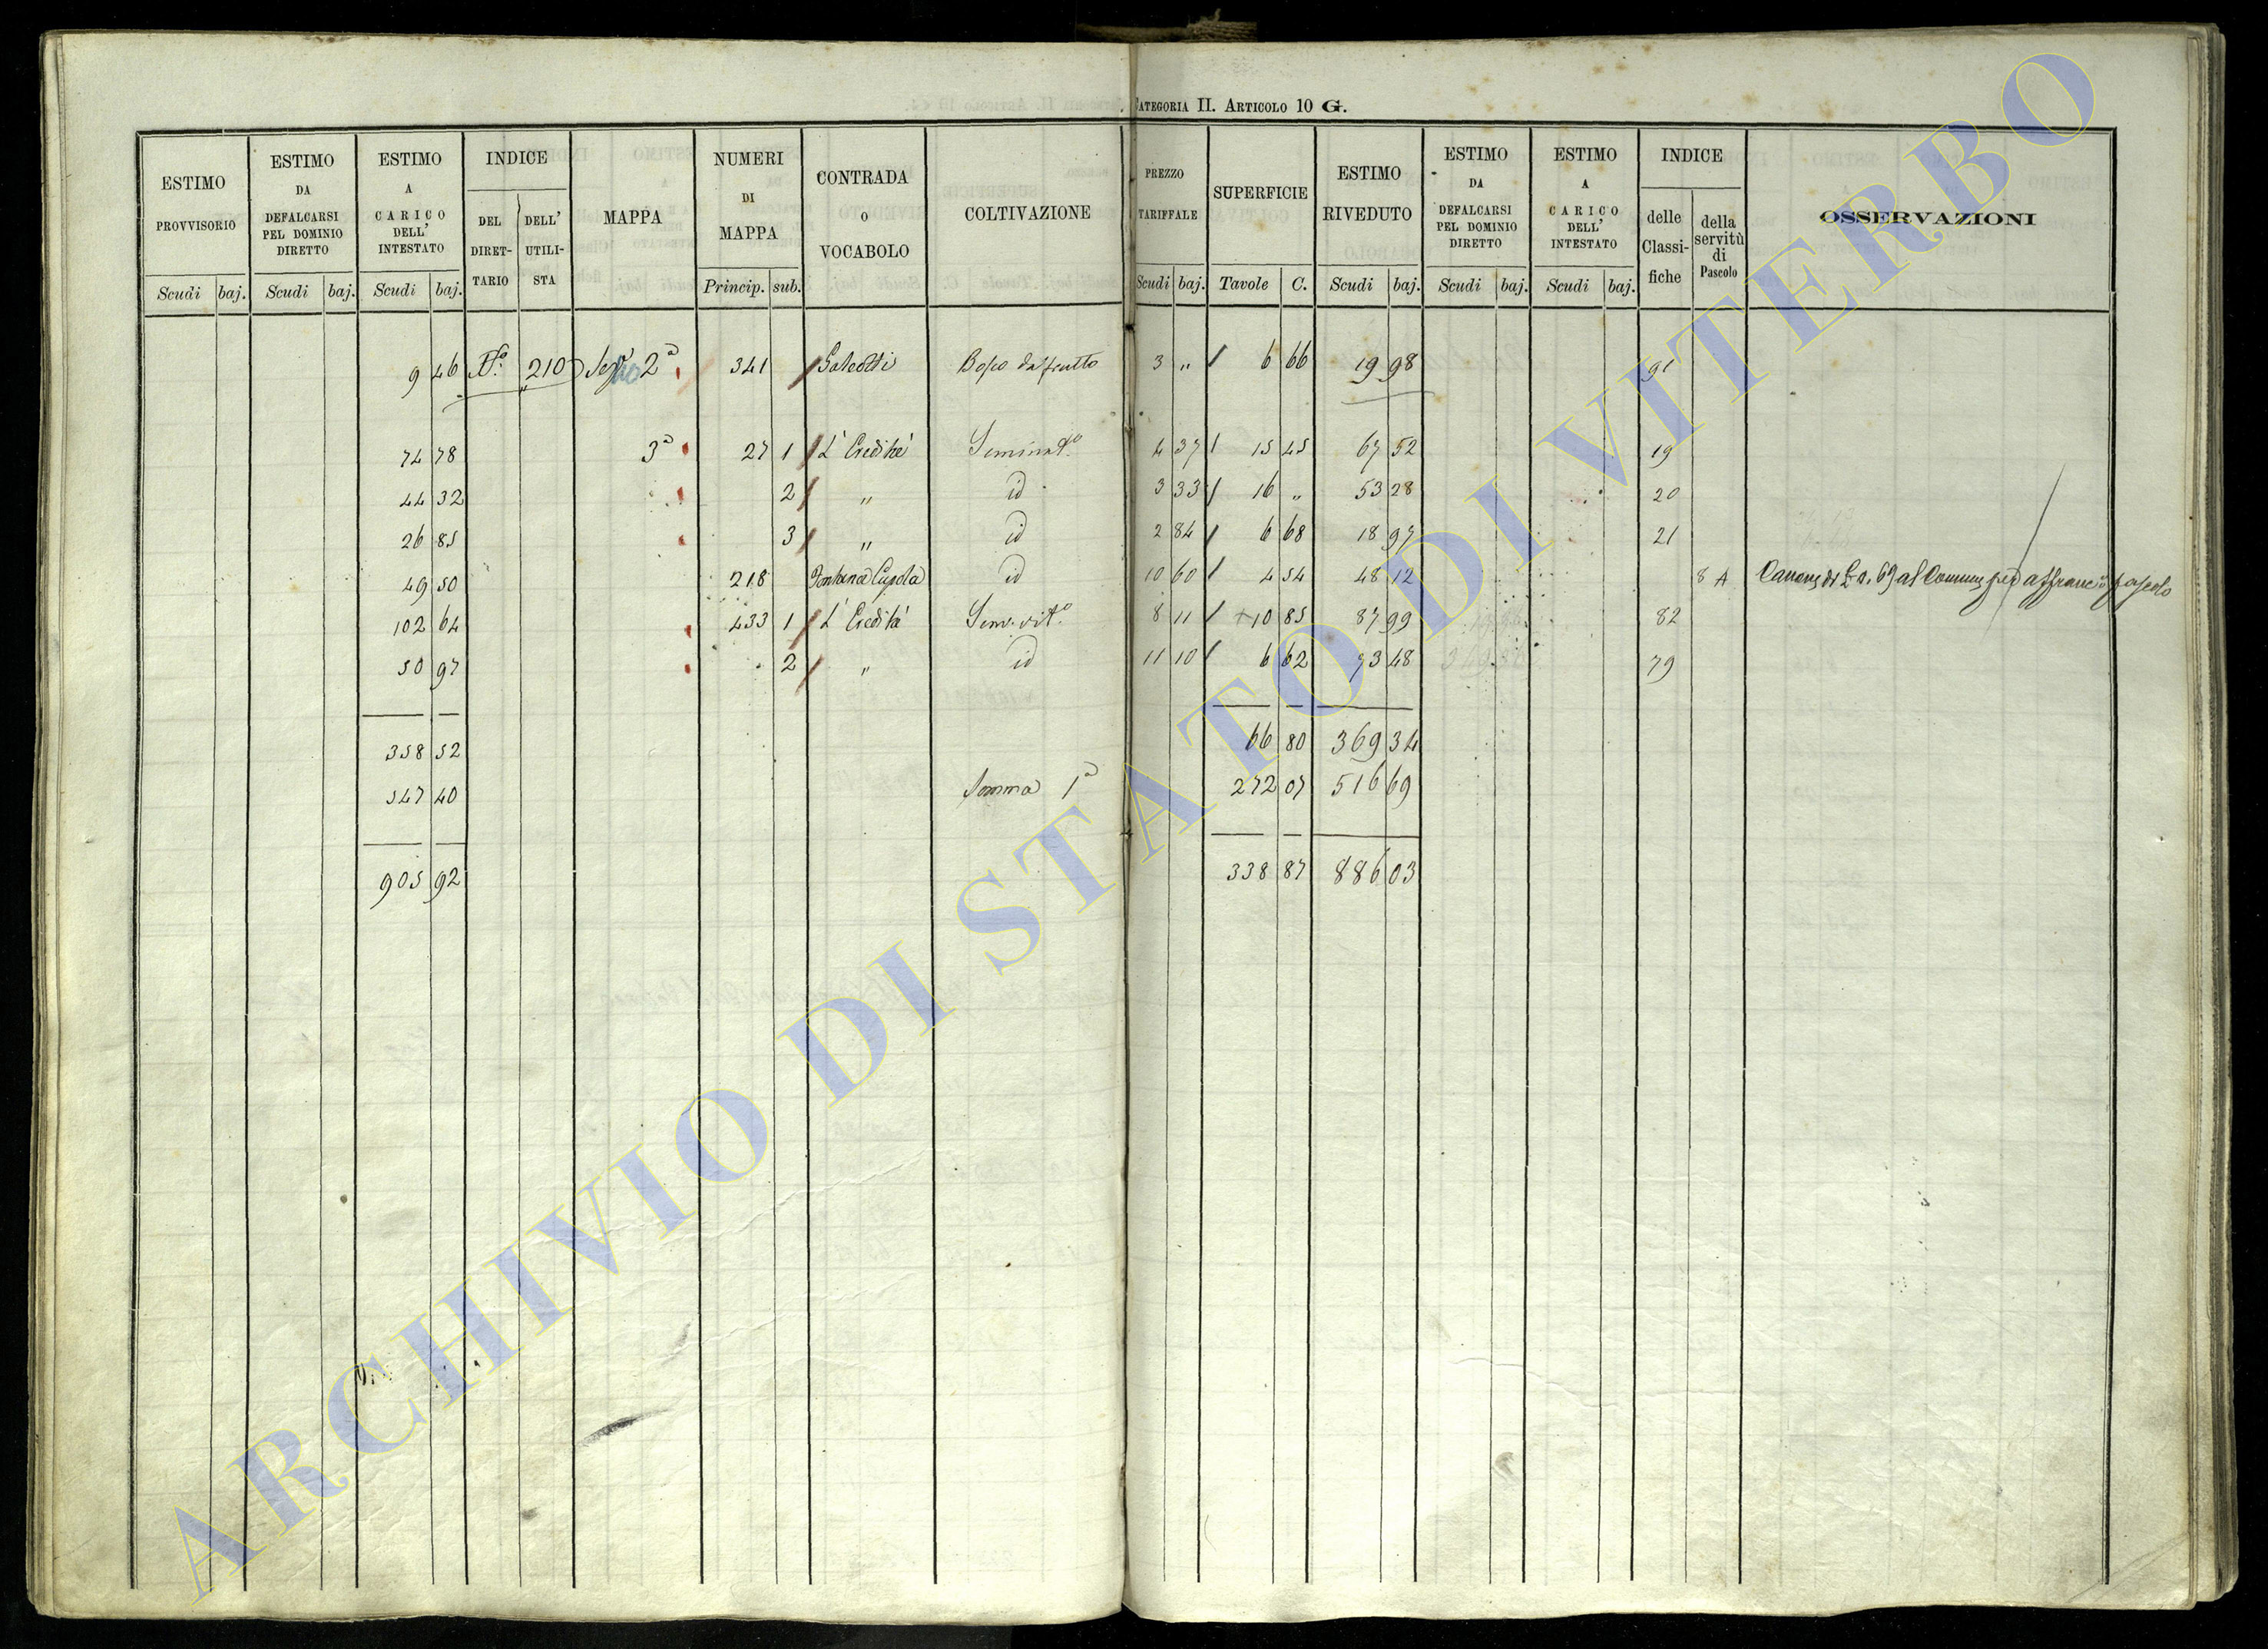 CATEGORIA II. ARTICOLO 10 G.
ESTIMO PROVVISORIO Scudi baj.
ESTIMO DA DEFALCARSI PEL DOMINIO DIRETTO Scudi baj.
ESTIMO A CARICO DELL' INTESTATO Scudi baj.
INDICE DEL DIRET- TARIO DELL' UTILI- STA
MAPPA
NUMERI DI MAPPA Princip. sub.
CONTRADA O VOCABOLO
COLTIVAZIONE
PREZZO TARIFFALE Scudi baj.
SUPERFICIE Tavole C.
ESTIMO RIVEDUTO Scudi baj.
ESTIMO DA DEFALCARSI PEL DOMINIO DIRETTO Scudi baj.
ESTIMO A CARICO DELL' INTESTATO Scudi baj.
INDICE delle Classi- fiche della servitù di Pascolo
OSSERVAZIONI
9 46 N.° 210 Sez. 2a 341 Bosco da frutto 3 " 6 66 19 98 91
74 78 3a 27 1 L' Eredità Seminat.o 4 37 15 45 67 52 19
44 32 2 " id 3 33 16 " 53 28 20
26 85 3 " id 2 84 6 68 18 97 21
49 50 218 Fontana Cupola id 10 60 4 54 48 12 8 A Canone di al Comune per affranc. pascolo
102 64 433 1 L' Eredità Sem. vit.o 8 11 10 85 87 99 82
50 97 2 " id 11 10 6 62 73 48 79
358 52 66 80 369 34
547 40 Somma 1a 272 07 516 69
905 92 338 87 886 03
ARCHIVIO DI STATO DI VITERBO